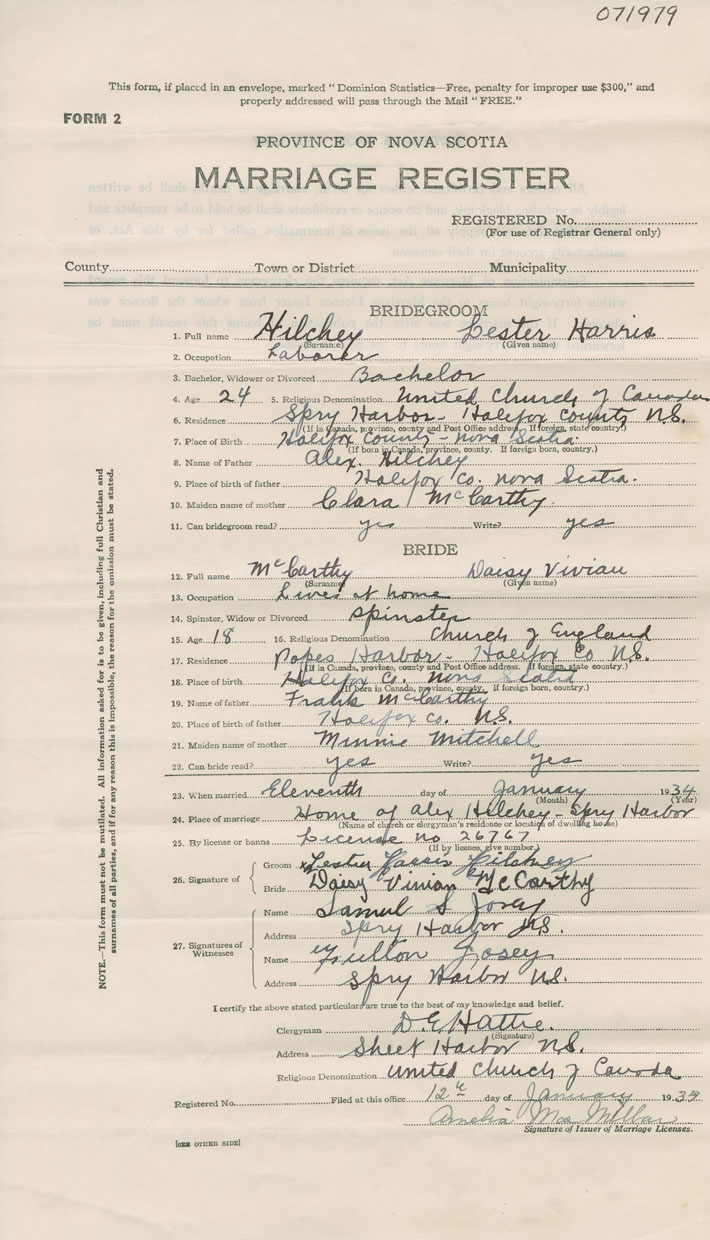 071979
This form, if placed in an envelope, marked "Dominion Statistics—Free, penalty for improper use $300," and
properly addressed will pass through the Mail "FREE."
FORM 2
PROVINCE OF NOVA SCOTIA
MARRIAGE REGISTER
REGISTERED No.
(For use of Registrar General only)
County Town or District Municipality
BRIDEGROOM
1. Full name Hilchey Lester Harris
(Surname) (Given name)
2. Occupation Laborer
3. Bachelor, Widower or Divorced Bachelor
4. Age 24 5. Religious Denomination United Church of Canada
6. Residence Spry Harbor - Halifax County N.S.
(If in Canada, province, county and Post Office address. If foreign, state country.)
7. Place of Birth Halifax County - Nova Scotia.
(If born in Canada, province, county. If foreign born, country.)
8. Name of Father Alex. Hilchey
9. Place of birth of father Halifax Co. Nova Scotia.
10. Maiden name of mother Clara McCarthy.
11. Can bridegroom read? yes Write? yes
BRIDE
12. Full name McCarthy Daisy Vivian
(Surname) (Given name)
13. Occupation Lives at home
14. Spinster, Widow or Divorced Spinster
15. Age 18 16. Religious Denomination Church of England
17. Residence Popes Harbor - Halifax Co N.S.
(If in Canada, province, county and Post Office address. If foreign, state country.)
18. Place of birth Halifax Co. Nova Scotia
(If born in Canada, province, county. If foreign born, country.)
19. Name of father Frank McCarthy
20. Place of birth of father Halifax Co. N.S.
21. Maiden name of mother Minnie Mitchell
22. Can bride read? yes Write? yes
23. When married Eleventh day of January 1934
(Month) (Year)
24. Place of marriage Home of Alex Hilchey - Spry Harbor
(Name of church or clergyman's residence or location of dwelling house)
25. By license or banns License no 26767
(If by licence, give number)
26. Signature of Groom x Lester Harris Hilchey
Bride Daisy Vivian McCarthy
27. Signatures of Witnesses
Name Samuel S Josey
Address Spry Harbor N.S.
Name Fulton Josey
Address Spry Harbor N.S.
I certify the above stated particulars are true to the best of my knowledge and belief.
Clergyman D.E. Hattie.
(Signature)
Address Sheet Harbor N.S.
Religious Denomination United Church of Canada
Registered No. Filed at this office 12th day of January 1934
Amelia MacMillan
Signature of Issuer of Marriage Licenses.
[SEE OTHER SIDE]
NOTE.—This form must not be mutilated. All information asked for is to be given, including full Christian and
surnames of all parties, and if for any reason this is impossible, the reason for the omission must be stated.